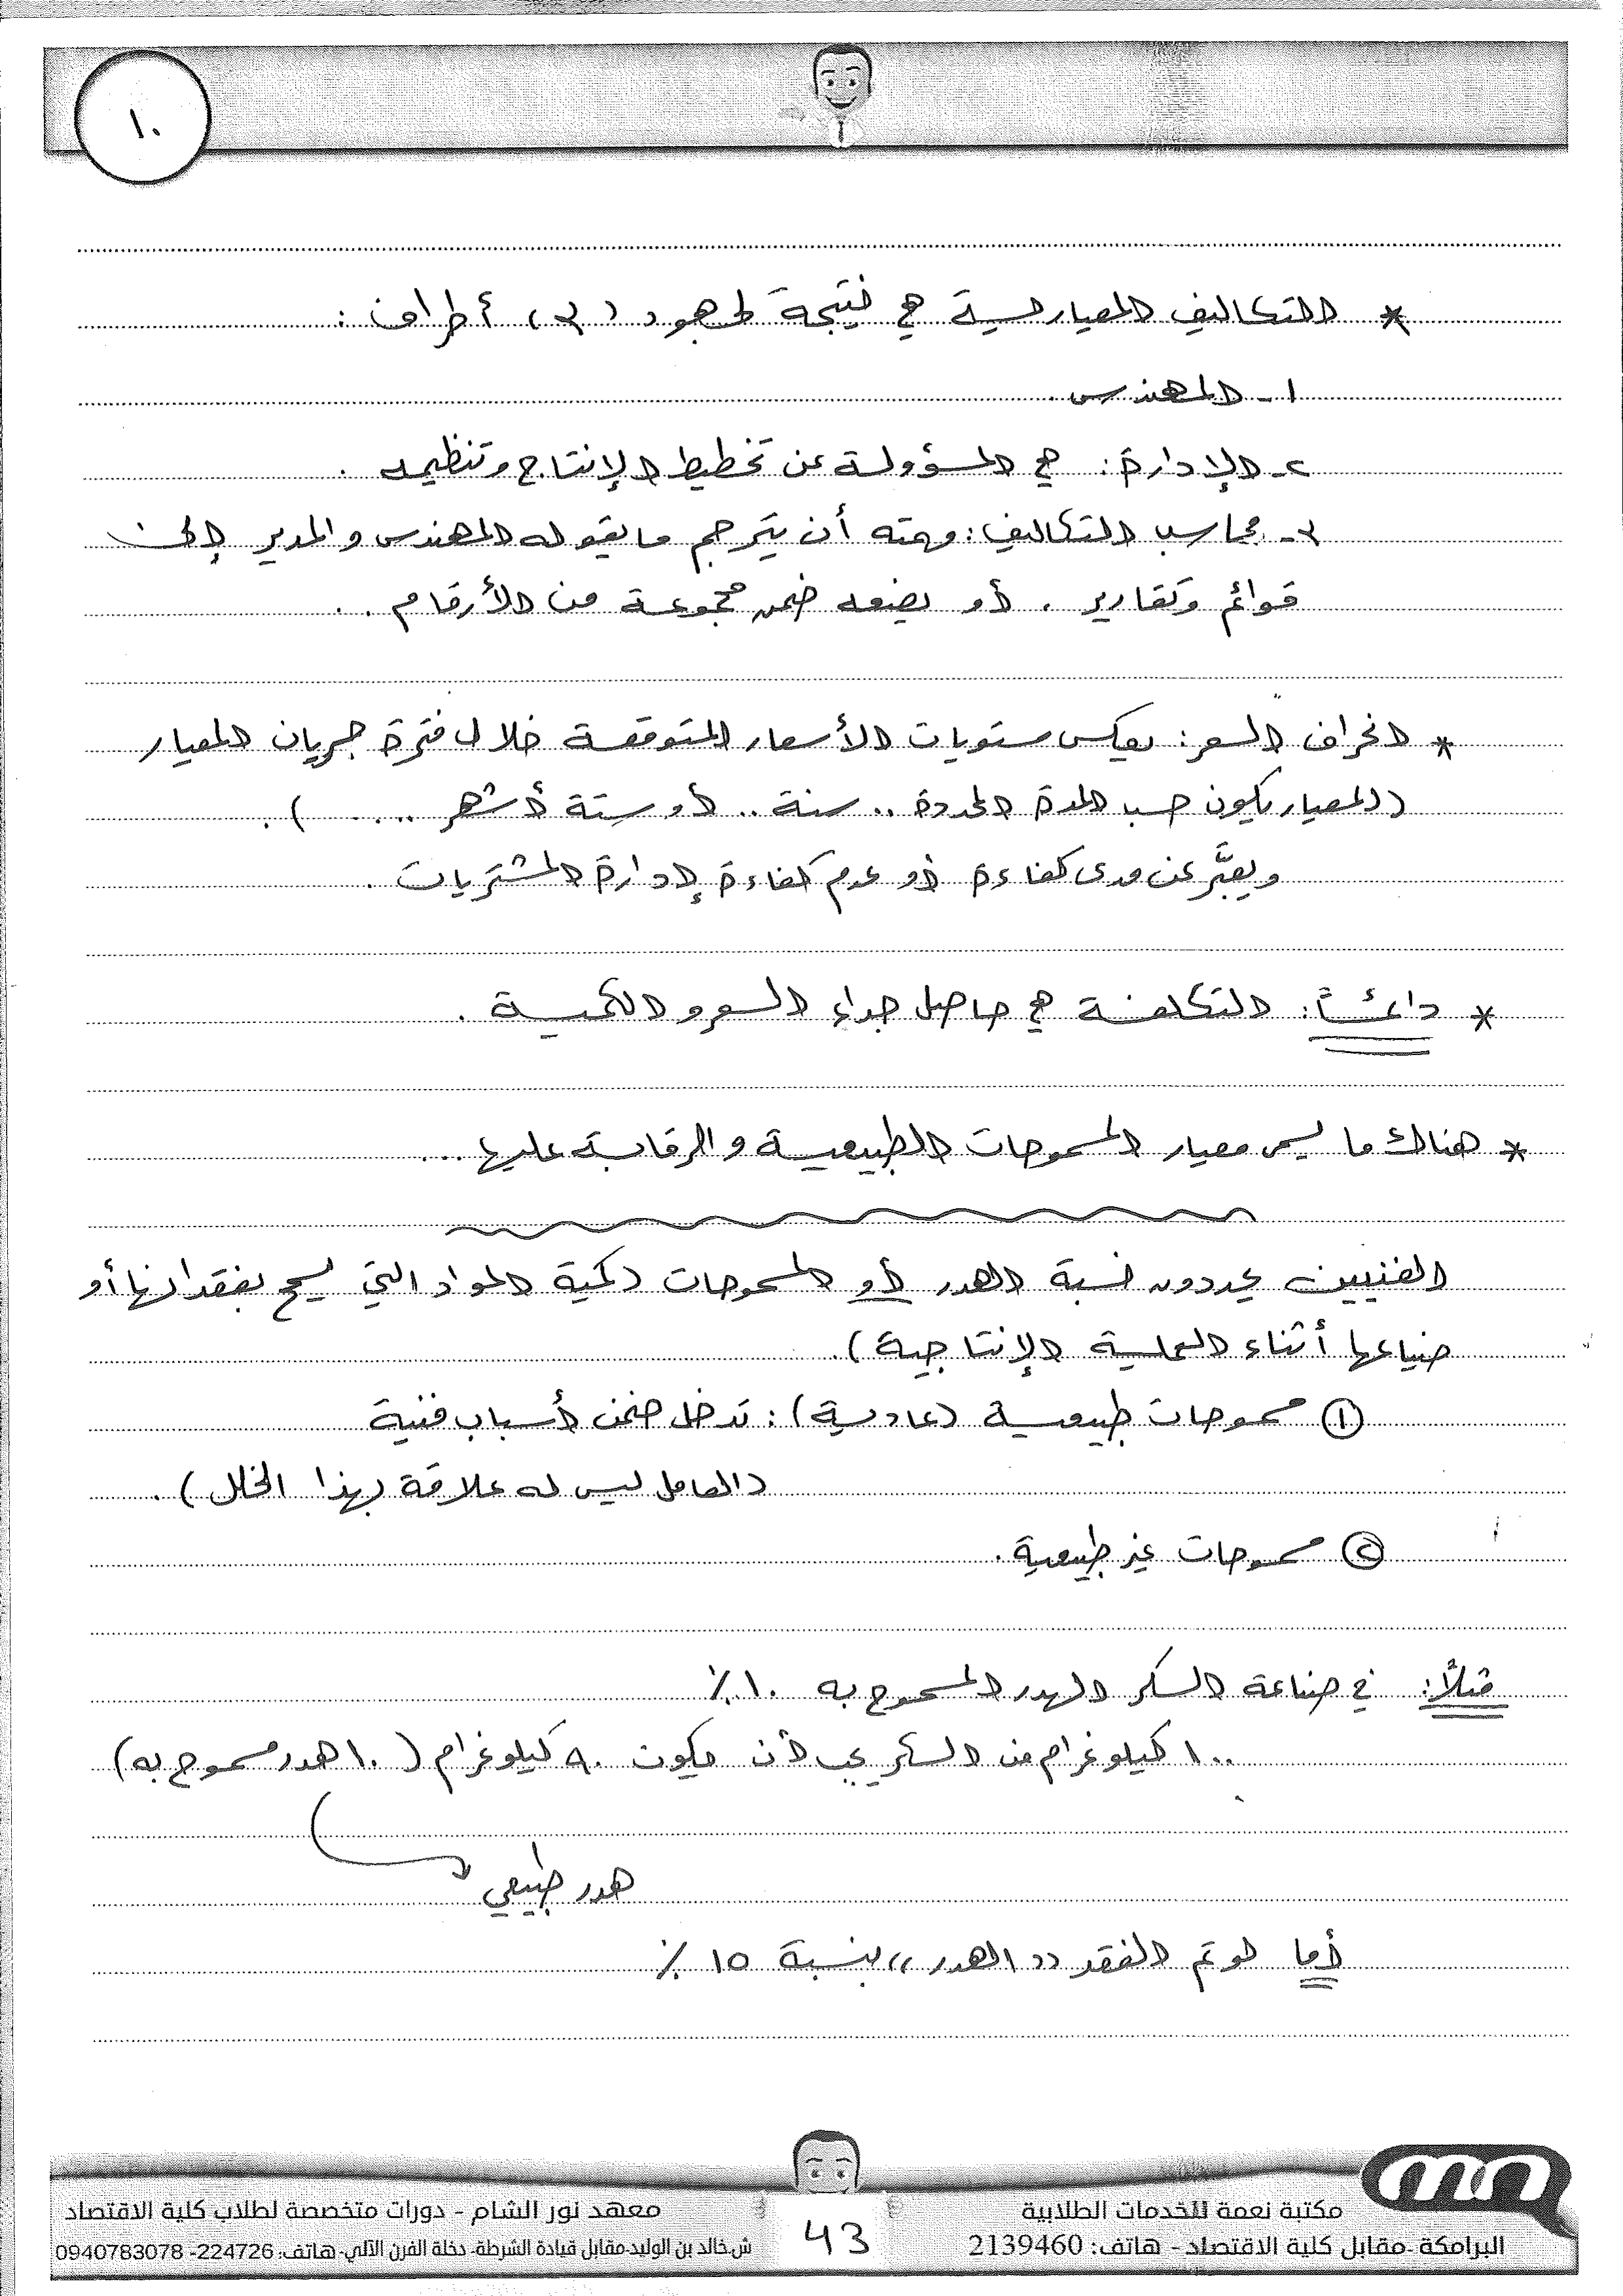 ١٠
* التكاليف المعيارية هي نتيجة لجهود (٣) أطراف :
١- المهندس.
٢- الإدارة: هي المسؤولة عن تخطيط الإنتاج وتنظيمه .
٣- محاسب التكاليف: مهمته أن يترجم ما يقوله المهندس والمدير إلى
قوائم وتقارير . أو يضعه ضمن مجموعة من الأرقام ..
* انحراف السعر: يعكس مستويات الأسعار المتوقعة خلال فترة جريان المعيار
(المعيار يكون حسب المدة المحددة .. سنة .. أو ستة أشهر .....) .
ويعبَّر عن مدى كفاءة أو عدم كفاءة إدارة المشتريات .
* دائماً: التكلفة هي حاصل جداء السعر و الكمية .
* هناك ما يسمى معيار المسموحات الطبيعية والرقابة عليها ...
الفنيين يحددون نسبة الهدر أو المسموحات (كمية المواد التي يسمح بفقدانها أو
ضياعها أثناء العملية الإنتاجية).
① مسموحات طبيعية (عادية): تدخل ضمن أسباب فنية
(العامل ليس له علاقة بهذا الخلل) .
② مسموحات غير طبيعية.
مثلاً: في صناعة السكر الهدر المسموح به ١٠٪
١٠٠ كيلوغرام من السكر يجب أن يكون ٩٠ كيلوغرام (١٠ هدر مسموح به)
هدر طبيعي
أما لو تم الفقد "الهدر" بنسبة ١٥٪
مكتبة نعمة للخدمات الطلابية
البرامكة -مقابل كلية الاقتصاد - هاتف: 2139460
43
معهد نور الشام - دورات متخصصة لطلاب كلية الاقتصاد
ش.خالد بن الوليد-مقابل قيادة الشرطة- دخلة الفرن الآلي-هاتف: 224726- 0940783078